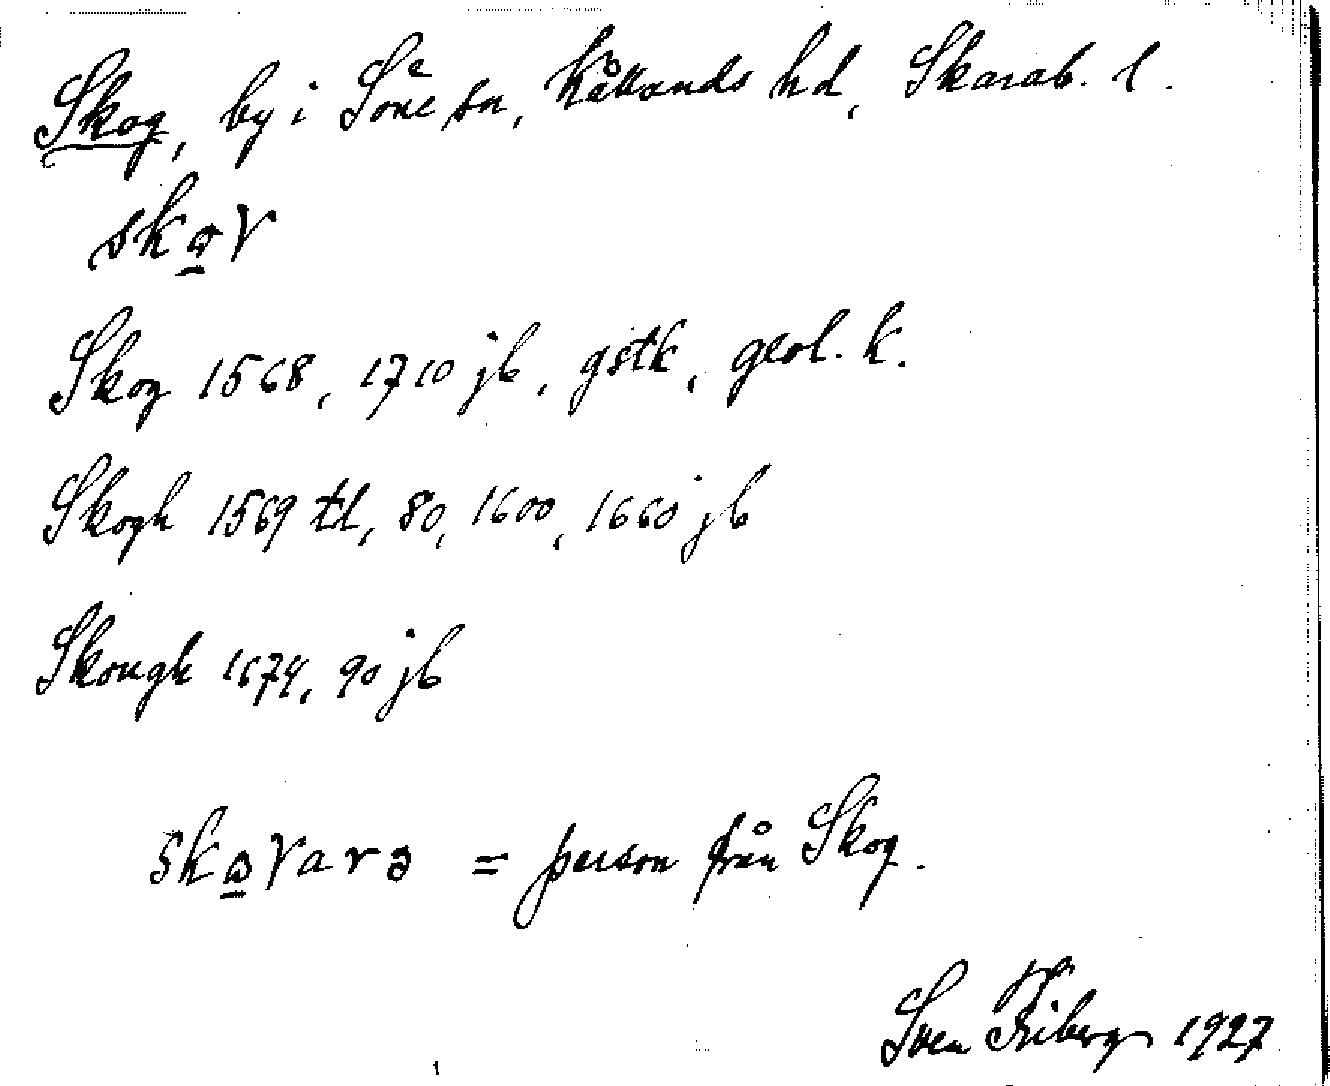 Skog, by i Söne sn, Kållands hd, Skarab. l.
skɷ̱r
Skog 1568, 1710 jb, gstk, geol. k.
Skogh 1569 tl, 80, 1600, 1660 jb
Skough 1674, 90 jb
skɷ̱rarə = person från Skog.
Sven Friberg 1927